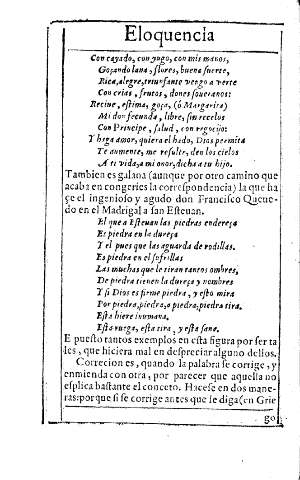 Eloquencia
Con cayado, con yugo, con mis manos,
Goçando lana, flores, buena suerte,
Rica, alegre, triunfante vengo a verte
Con crias, frutos, dones soueranos:
Reciue, estima, goça, (ò Margarita)
Mi don fecunda, libre, sin recelos
Con Principe, salud, con regocijo:
Y haga amor, quiera el hado, Dios permita
Te aumente, me resulte, den los cielos
A ti vida, a mi onor, dicha a tu hijo.
Tambien es galana (aunque por otro camino que
acaba en congeries la correspondencia) la que ha
çe el ingenioso y agudo don Francisco Queue-
do en el Madrigal a san Esteuan.
El que a Esteuan las piedras endereça
Es piedra en la dureça
Y el pues que las aguarda de rodillas.
Es piedra en el sufrillas
Las muchas que le tiran tantos ombres,
De piedra tienen la dureça y nombres
Y si Dios es firme piedra, y esto mira
Por piedra, piedra, a piedra, piedra tira.
Esta hiere inumana.
Esta ruega, esta tira, y esta sana.
E puesto tantos exemplos en esta figura por ser ta
les, que hiciera mal en despreciar alguno dellos.
Correcion es, quando la palabra se corrige, y
enmienda con otra, por parecer que aquella no
esplica bastante el conceto. Haçese en dos mane-
ras: porque si se corrige antes que se diga (en Grie
go